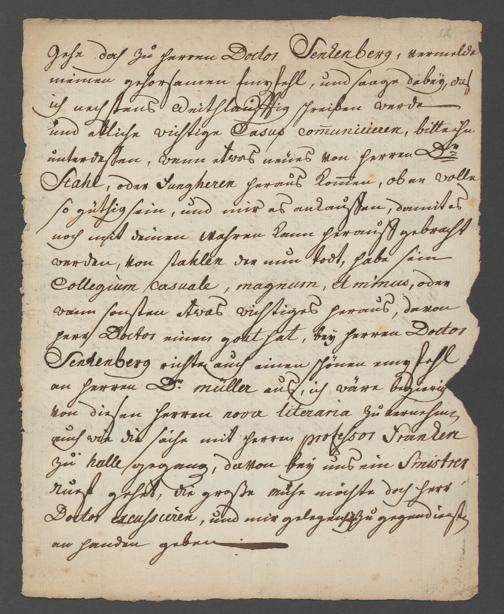 Gehe doch zu herren Doctor Senkenberg, vermelde
meinen gehorsamen Empfehl, und sage dabey, daß
ich nechstens Weithläuffig schreiben werde
und etliche wichtige Casus communiciren, bitte ihn
unterdessen, wenn etwas neues von herren Dr.
Stahl, oder Junghern heraus kommen, ob er wolle
so güthig sein, und mir es ankauffen, damit es
noch mit deinen wahren kann herauff gebracht
werden, von stahlen der nun todt, habe sein
Collegium Casuale, magnum, et minus, oder
wann sonsten etwas wichtiges heraus, davon
herr Doctor einen hat, bey herren Doctor
Senkenberg richte auch einen schönen empfehl
an herren Dr. müller aus, ich wäre begierig
von diesen herren nova literaria zu vernehmen
auch wie die sache mit herren professor Francken
zu halle gegangen, davon bey uns ein
Rueff gehet, die große mühe möchte doch herr
Doctor excussiren, und mir gelegenheit zu gegendienste
an handen geben